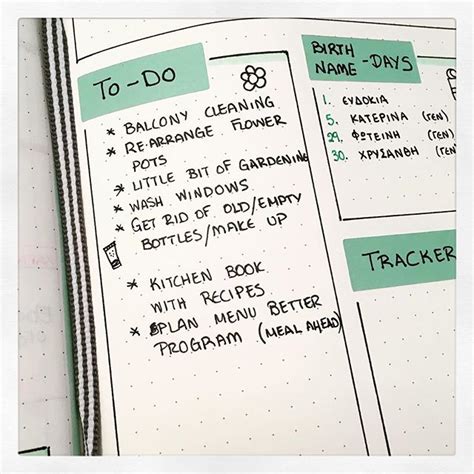 TO-DO
* BALCONY CLEANING
* RE-ARRANGE FLOWER
POTS
* LITTLE BIT OF GARDENING
* WASH WINDOWS
* GET RID OF OLD/EMPTY
BOTTLES/MAKE UP
* KITCHEN BOOK
WITH RECIPES
* PLAN MENU BETTER
PROGRAM (MEAL AHEAD)
BIRTH
NAME -DAYS
1. ΕΥΔΟΚΙΑ
5. ΚΑΤΕΡΙΝΑ (ΓΕΝ)
29. ΦΩΤΕΙΝΗ (ΓΕΝ)
30. ΧΡΥΣΑΝΘΗ (ΓΕΝ)
TRACKER